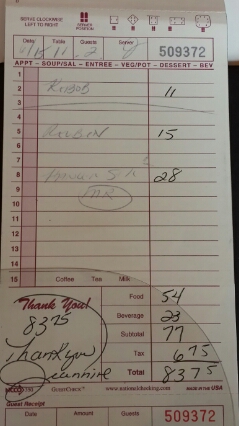 SERVE CLOCKWISE
LEFT TO RIGHT
SERVER POSITION
Date Table Guests Server
509372
APPT - SOUP/SAL - ENTREE - VEG/POT - DESSERT - BEV
1
2 KABOB 11
3
4
5 REUBEN 15
6
7
8 28
9 MR
10
11
12
13
14
15 Coffee Tea Milk
Thank You!
8375
Thank you
Jeannine
Food 54
Beverage 23
Subtotal 77
Tax 675
Total 8375
GUESTCHECK™
MADE IN THE USA
Guest Receipt
Date Amount Guests
509372